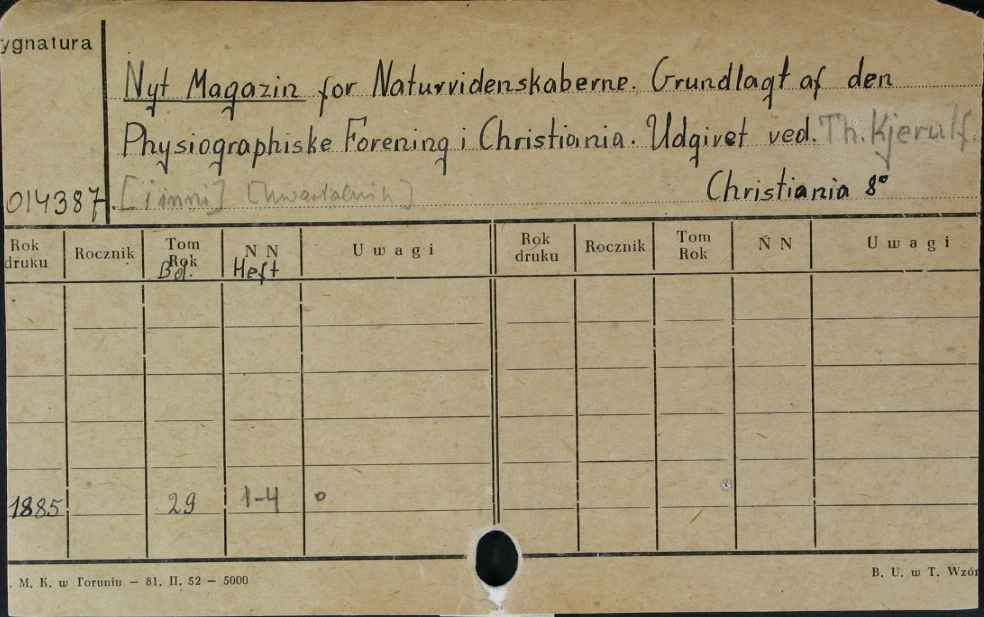 ygnatura
Nyt Magazin for Naturvidenskaberne. Grundlagt af den
Physiographiske Forening i Christiania. Udgivet ved. Th. Kjerulf.
014387. [i inni] [kwartalnik] Christiania 8°
Rok druku Rocznik Tom Rok Bd. N N Heft Uwagi Rok druku Rocznik Tom Rok N N Uwagi
1885 29 1-4 o
. M. K. w Toruniu — 81. II. 52 — 5000 B. U. w T. Wzór